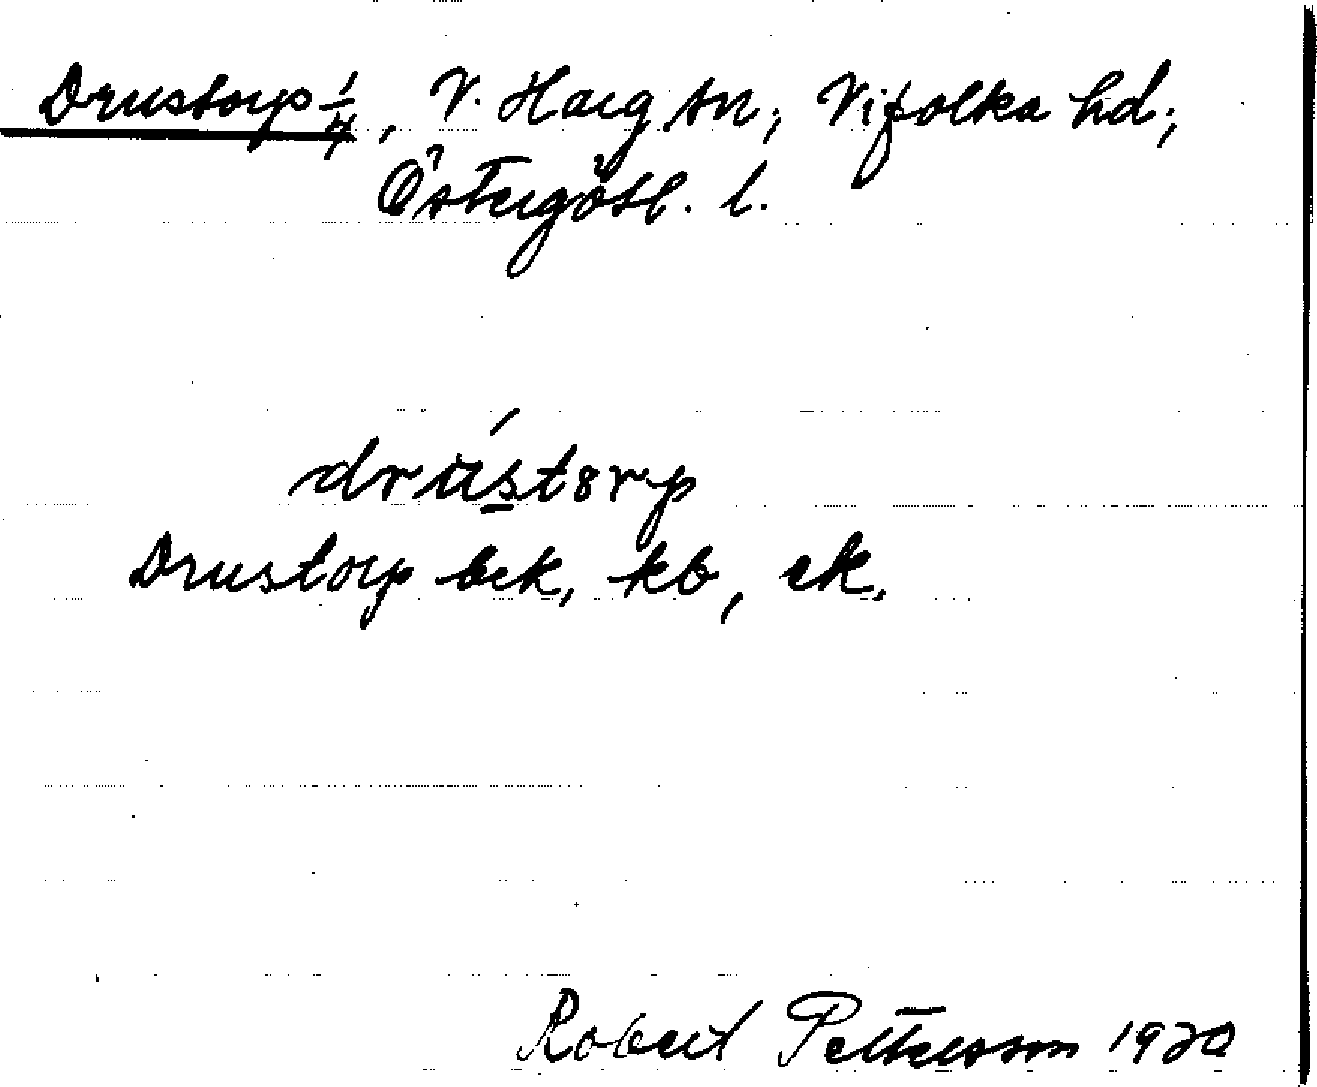 Drustorp 1/4, V. Harg sn; Vifolka hd;
Östergötl. l.
drús̲tɞrp
Drustorp bek, kb, ek.
Robert Pettersson 1920